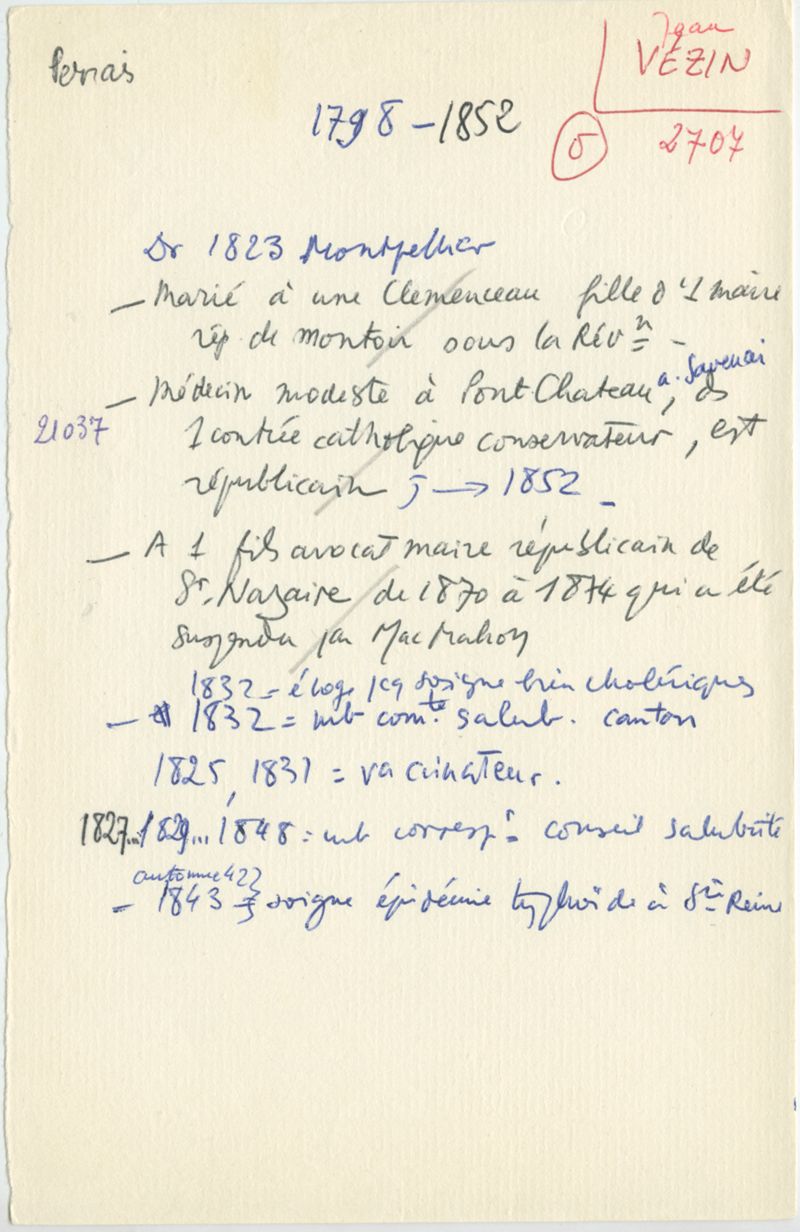 Jean
VÉZIN
2707
1798 - 1852
Dr 1823 Montpellier
- Marié à une Clemenceau fille d'1 maire
rép de montoir sous la Révn -
- Médecin modeste à Pont-Chateau, ds
a. Savenai
21037
1 contrée catholique conservateur, est
républicain j → 1852 -
- A 1 fils avocat maire républicain de
St. Nazaire de 1870 à 1874 qui a été
suspendu par Mac Mahon
1832 = éloge pcq soigne bien cholériques
- 1832 = mb comté salub. canton
1825, 1831 = vaccinateur.
1827... 1829... 1848 = mb corresp. conseil salubrité
automne 42
- 1843 = soigne épidémie typhoïde à Ste Reine